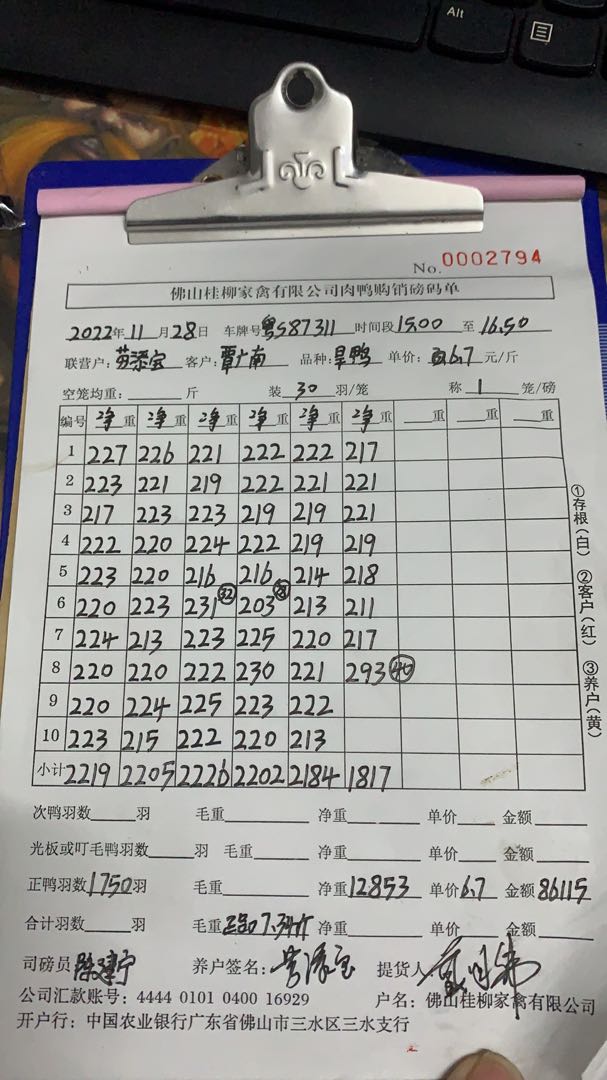 Alt
No. 0002794
佛山桂柳家禽有限公司肉鸭购销磅码单
2022年11月28日 车牌号粤S87311 时间段15.00 至 16.50
联营户: 客户:覃广南 品种:旱鸭 单价:6.7元/斤
空笼均重:____斤 装30羽/笼 称1笼/磅
编号 净重 净重 净重 净重 净重 净重 __重 __重 __重
1 227 226 221 222 222 217
2 223 221 219 222 221 221
3 217 223 223 219 219 221
4 222 220 224 222 219 219
5 223 220 216 216 214 218
6 220 223 231 (32) 203 (28) 213 211
7 224 213 223 225 220 217
8 220 220 222 230 221 293 (40)
9 220 224 225 223 222
10 223 215 222 220 213
小计 2219 2205 2226 2202 2184 1817
①存根(白) ②客户(红) ③养户(黄)
次鸭羽数____羽 毛重____ 净重____ 单价____ 金额____
光板或叮毛鸭羽数____羽 毛重____ 净重____ 单价____ 金额____
正鸭羽数1750羽 毛重____ 净重12853 单价6.7 金额86115
合计羽数____羽 毛重7.34斤 净重____ 单价____ 金额____
司磅员 养户签名: 提货人:
公司汇款账号:4444 0101 0400 16929 户名:佛山桂柳家禽有限公司
开户行:中国农业银行广东省佛山市三水区三水支行